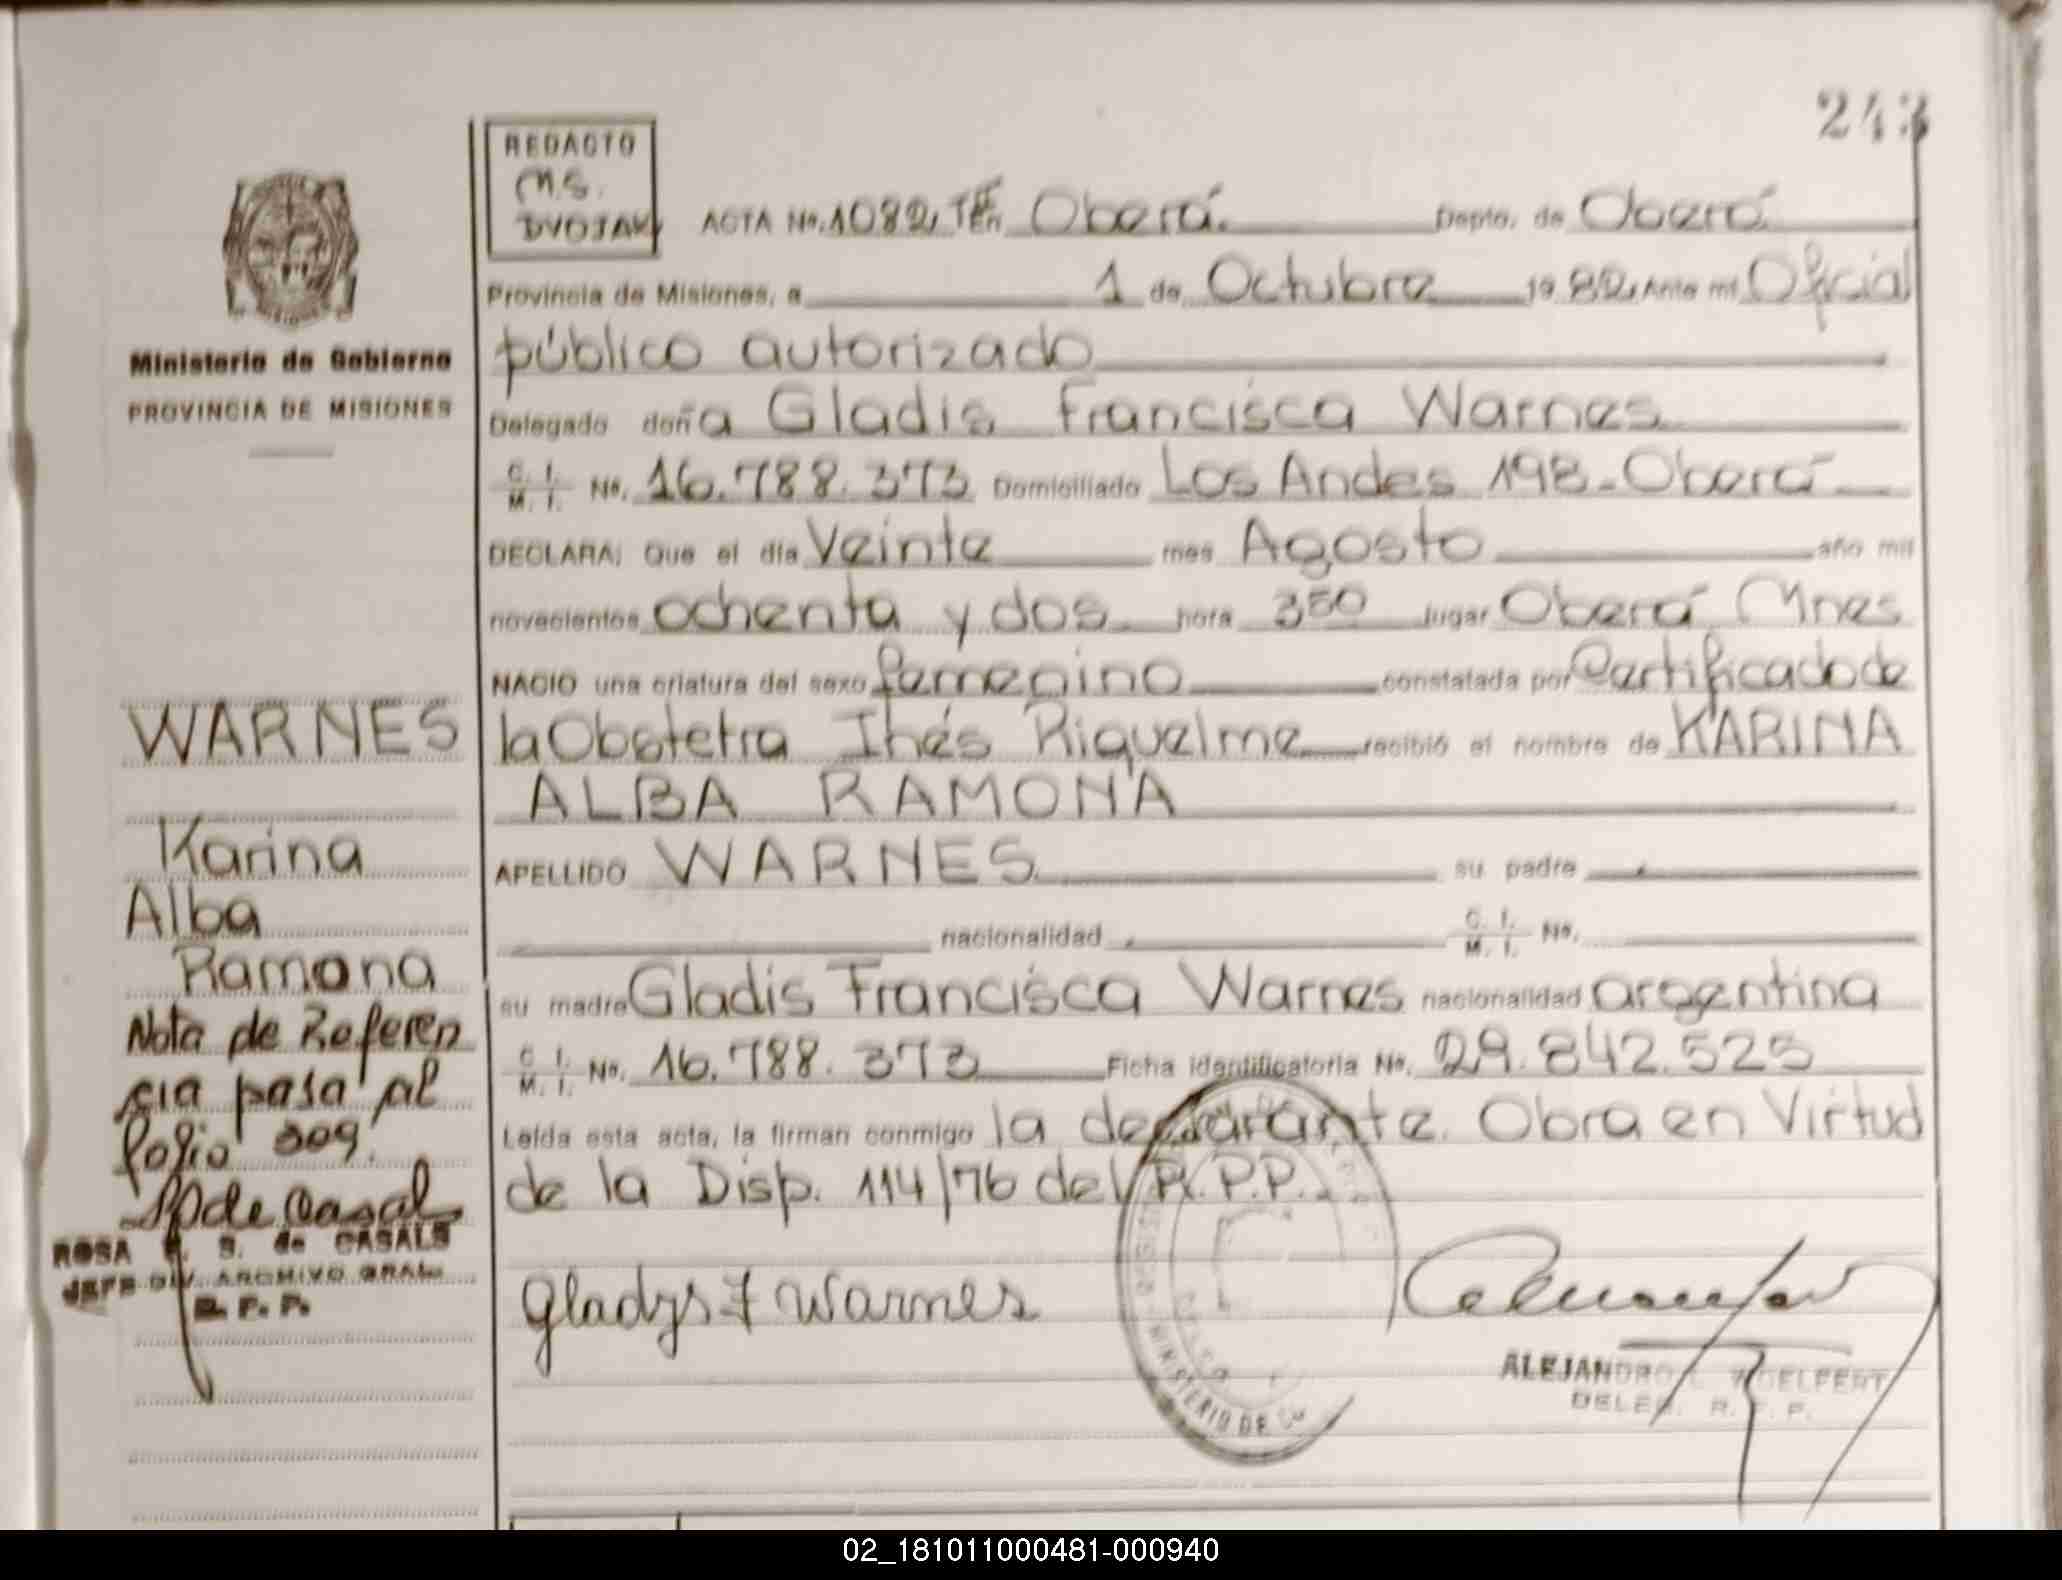 243
REDACTO
M.S.
DVOJAK
ACTA No. 1082, Tº Iº En Oberá. Depto. de Oberá
Provincia de Misiones, a 1 de Octubre 1982, Ante mi Oficial
público autorizado
Delegado doña Gladis Francisca Warnes
C. I. M. I. No. 16.788.373 Domiciliado Los Andes 198-Oberá
DECLARA; Que el día Veinte mes Agosto año mil
novecientos ochenta y dos hora 350 lugar Oberá Mnes
NACIO una criatura del sexo femenino constatada por Certificado de
la Obstetra Inés Riquelme recibió el nombre de KARINA
ALBA RAMONA
APELLIDO WARNES su padre
nacionalidad C. I. M. I. No.
su madre Gladis Francisca Warnes nacionalidad argentina
C. I. M. I. No. 16.788.373 Ficha identificatoria No. 29.842.525
Leída esta acta, la firman conmigo la declarante. Obra en Virtud
de la Disp. 114/76 del R.P.P.
Gladys F Warnes
ALEJANDRO
DELEG. R. P. P.
MINISTERIO DE
Ministerio de Gobierno
PROVINCIA DE MISIONES
WARNES
Karina
Alba
Ramona
Nota de Referen
cia pasa al
folio 309.
de Casals
ROSA S. de CASALS
JEFE DIV. ARCHIVO GRAL.
R. P. P.
02_181011000481-000940